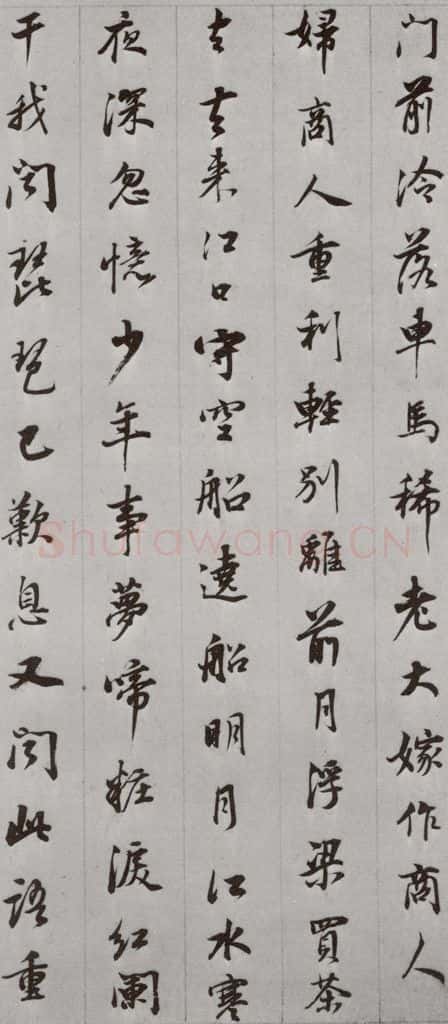 门前冷落車馬稀老大嫁作商人
婦商人重利輕別離前月浮梁買茶
去去来江口守空船遶船明月江水寒
夜深忽憶少年事夢啼粧淚紅闌
干我闻琵琶已歎息又闻此語重
Shufawang.CN